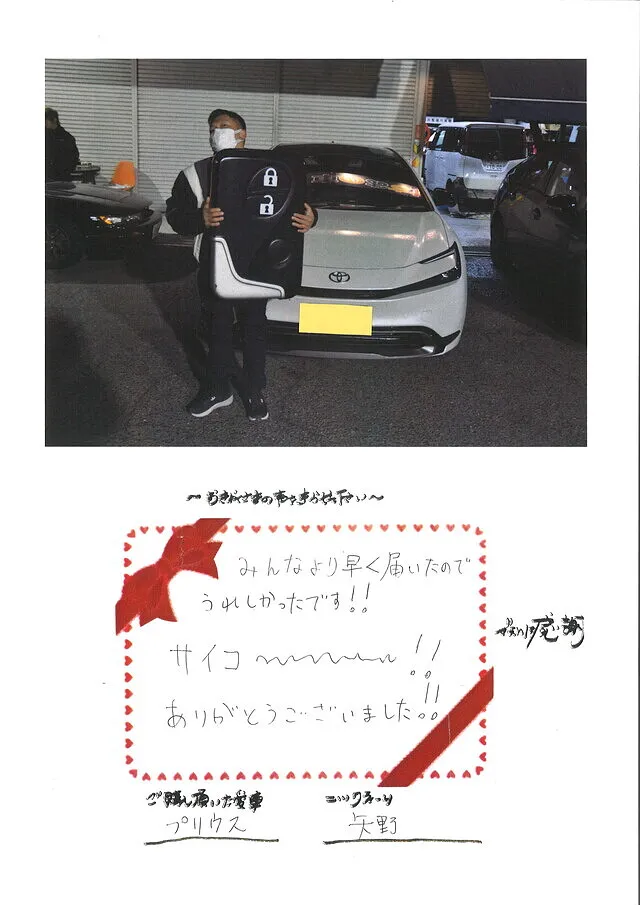 ～お客さまの声を聞かせて下さい～
みんなより早く届いたので
うれしかったです!!
サイコ〰〰〰!!
ありがとうございました!!
感謝
ご購入頂いた愛車
プリウス
ニックネーム
矢野